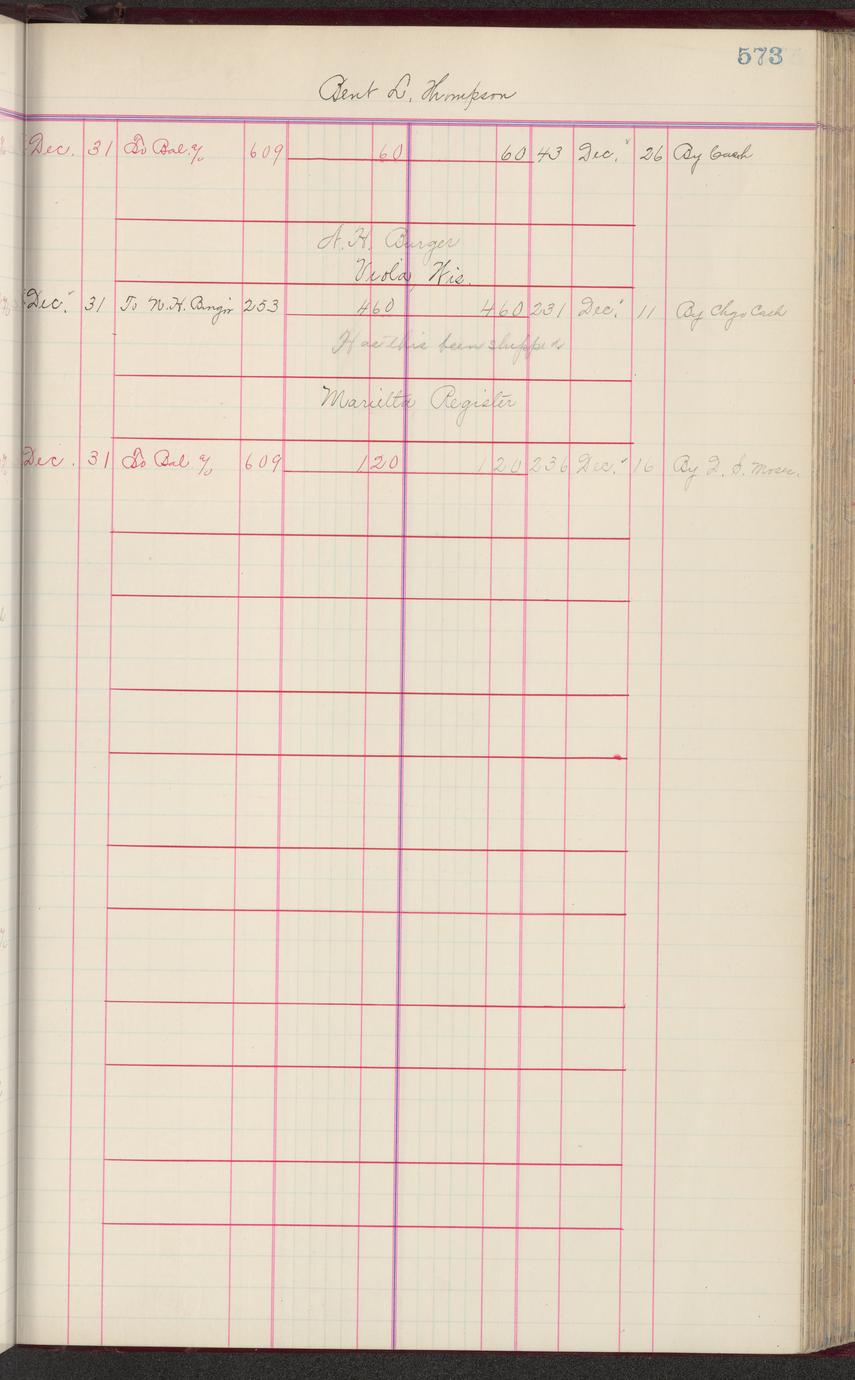 573
Bent L. Thompson
Dec. 31 To Bal. a/c 609 60 60 43 Dec. 26 By Cash
N. H. Burger
Viola, Wis.
Dec. 31 To N. H. 253 460 460 231 Dec. 11 By Chgo Cash
Has this been shipped
Marietta Register
Dec. 31 To Bal. a/c 609 120 120 236 Dec. 16 By D. S. Moser.